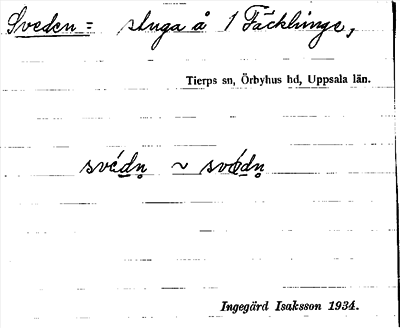 Sveden = stuga å 1 Fäcklinge,
Tierps sn, Örbyhus hd, Uppsala län.
své̱dṇ ~ svǿ̱dṇ
Ingegärd Isaksson 1934.